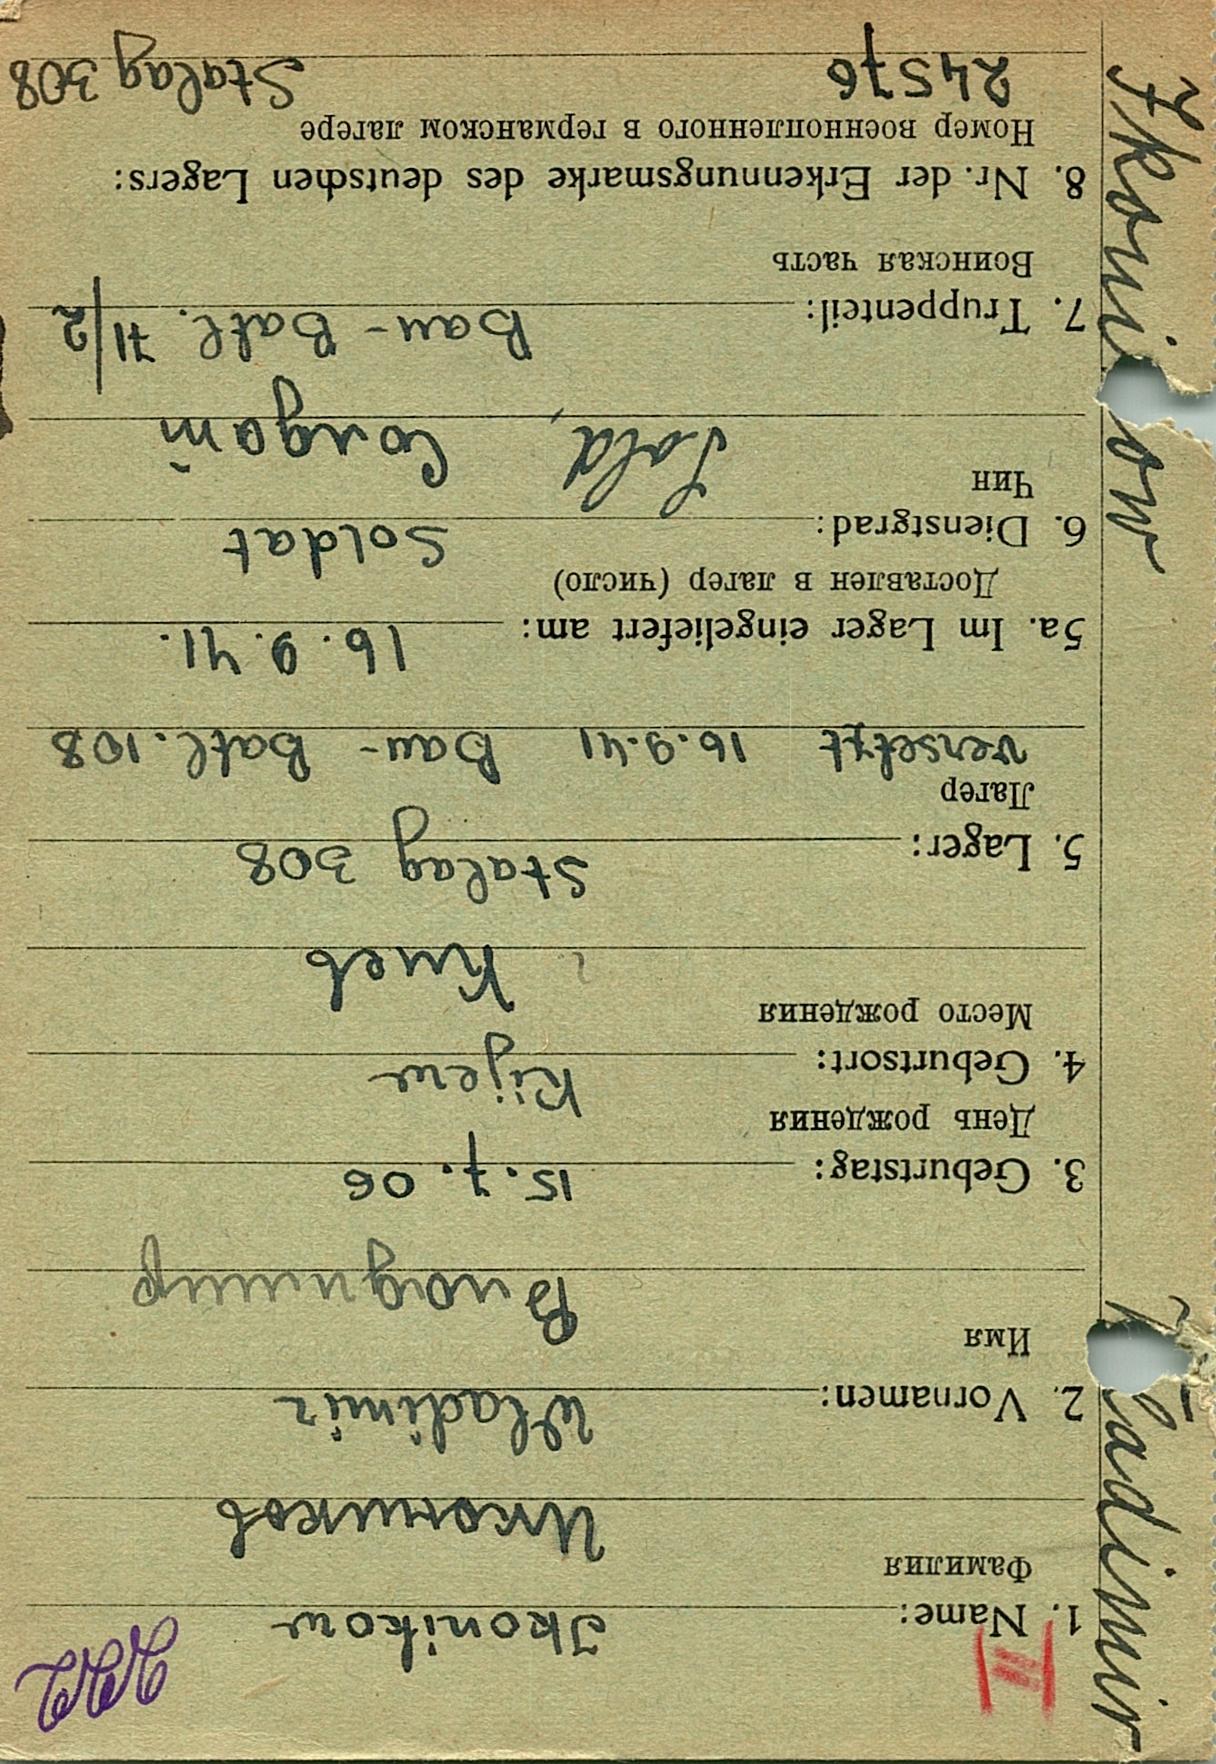 III
1. Name: Ikonikow
Фамилия
Икоников
2. Vornamen: Wladimir
Имя
Владимир
3. Geburtstag: 15.7.06
День рождения
4. Geburtsort: Kijew
Место рождения
Киев
5. Lager: Stalag 308
Лагер
versetzt 16.9.41 Bau-Batl. 108
5a. Im Lager eingeliefert am: 16.9.41.
Доставлен в лагер (число)
6. Dienstgrad: Soldat
Чин
Sold, Солдат
7. Truppenteil: Bau-Batl. 71/2
Воинская часть
8. Nr. der Erkennungsmarke des deutschen Lagers:
Номер военнопленного в германском лагере
24576 Stalag 308
Ikoni ow
ladimir